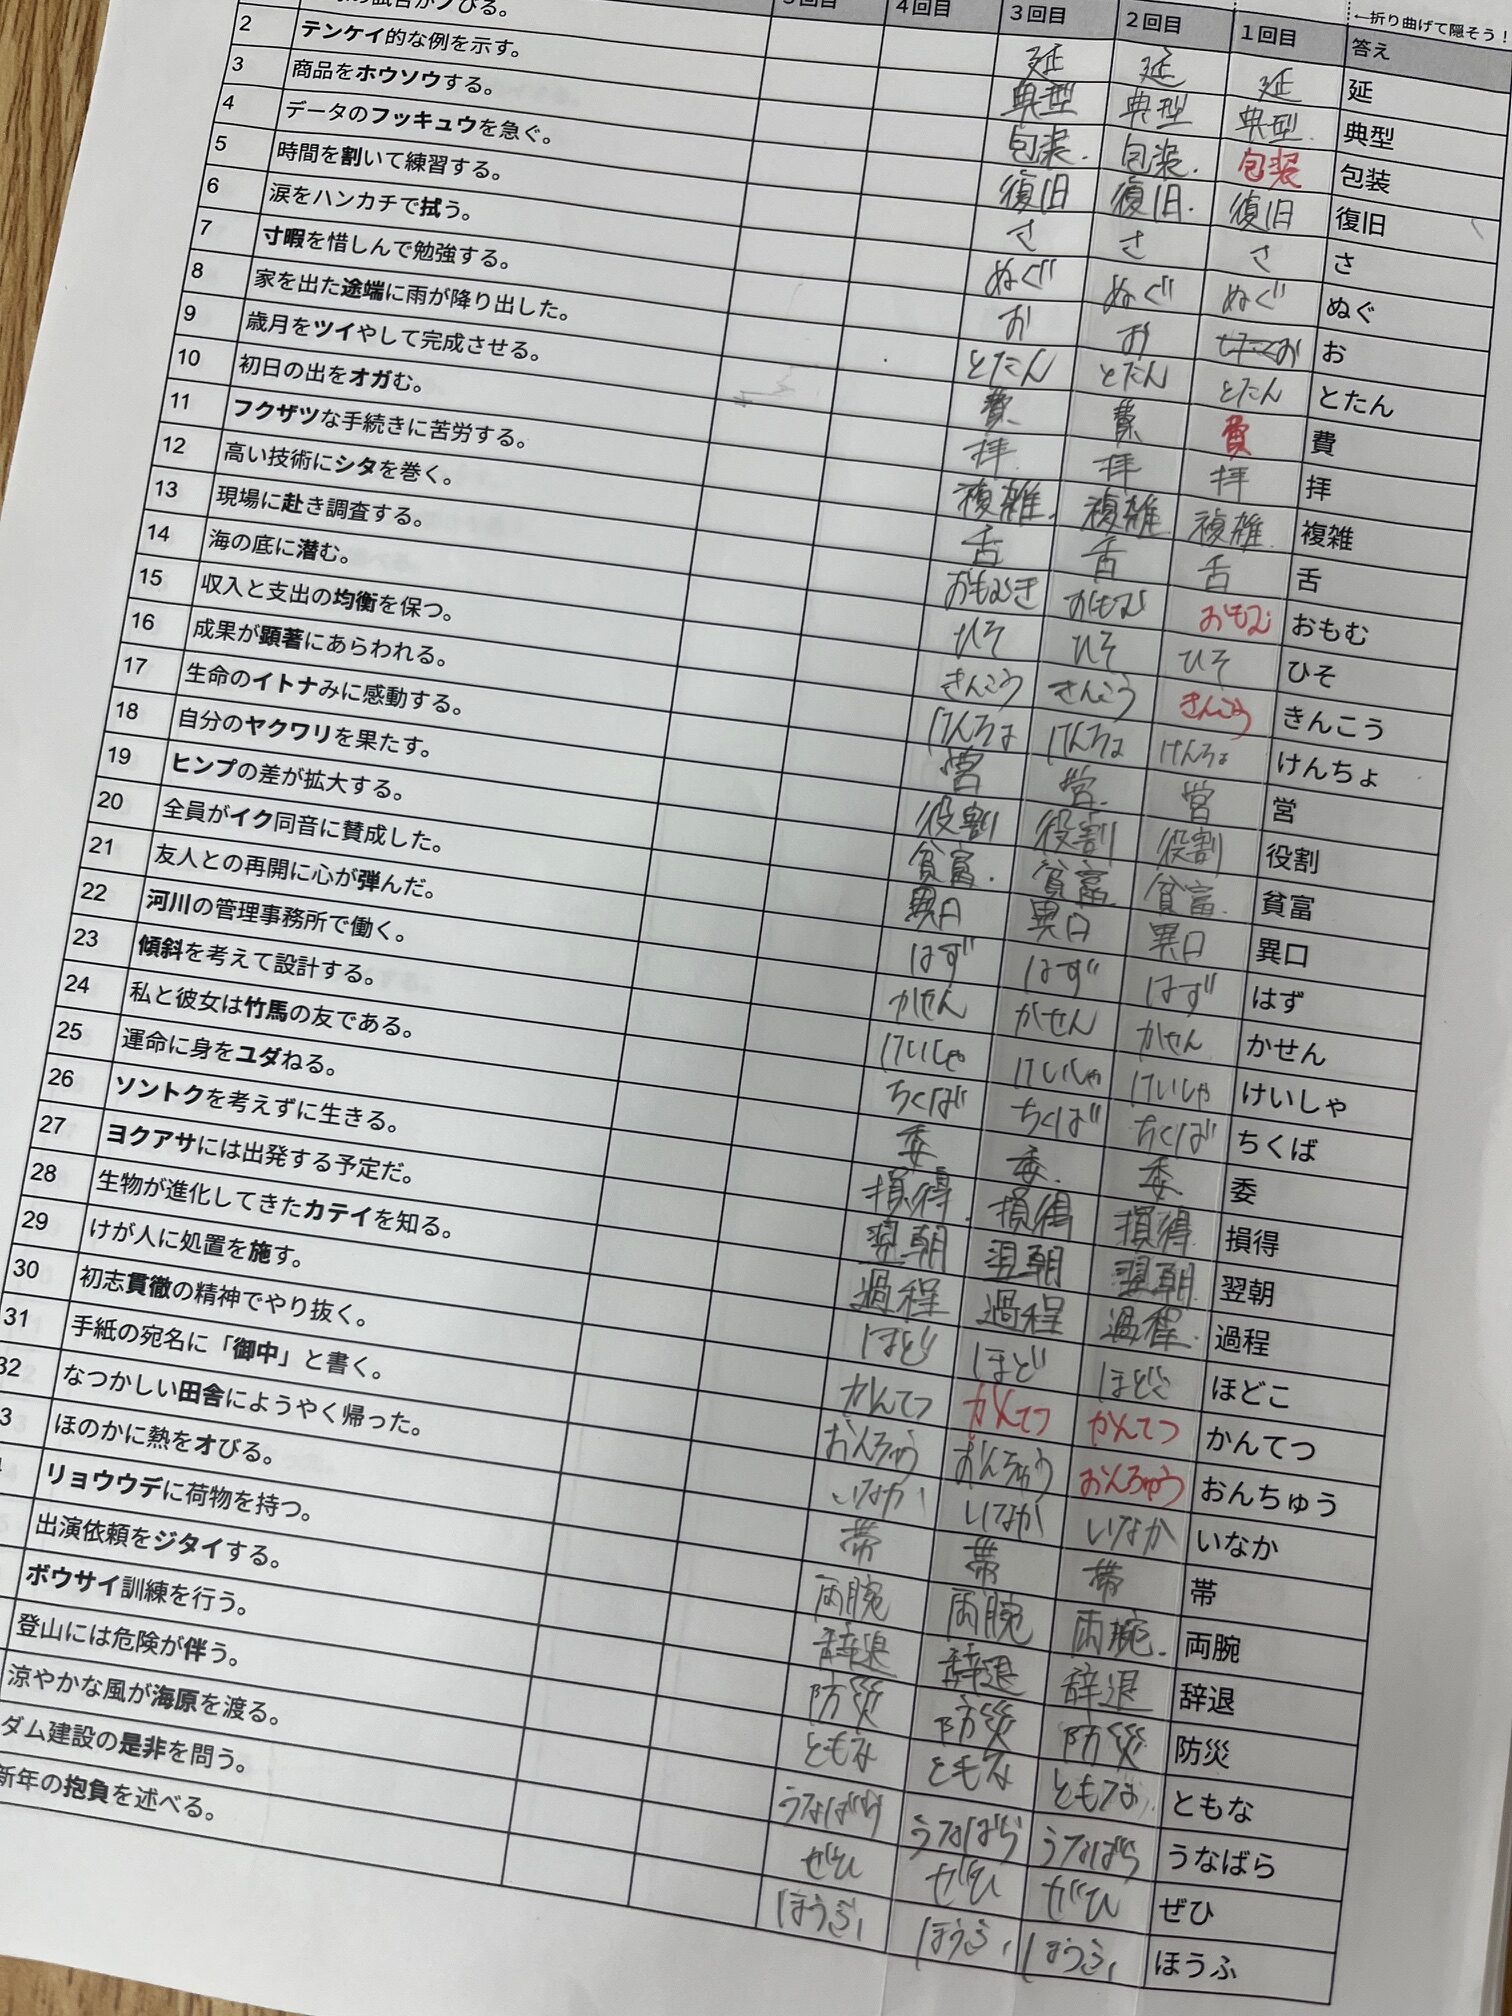 5回目 4回目 3回目 2回目 1回目 答え ←折り曲げて隠そう！
びる。 延 延 延 延
2 テンケイ的な例を示す。 典型 典型 典型 典型
3 商品をホウソウする。 包装 包装 包装 包装
4 データのフッキュウを急ぐ。 復旧 復旧 復旧 復旧
5 時間を割いて練習する。 さ さ さ さ
6 涙をハンカチで拭う。 ぬぐ ぬぐ ぬぐ ぬぐ
7 寸暇を惜しんで勉強する。 お お お お
8 家を出た途端に雨が降り出した。 とたん とたん とたん とたん
9 歳月をツイやして完成させる。 費 費 費 費
10 初日の出をオガむ。 拝 拝 拝 拝
11 フクザツな手続きに苦労する。 複雑 複雑 複雑 複雑
12 高い技術にシタを巻く。 舌 舌 舌 舌
13 現場に赴き調査する。 おもむき おもむ おもむ おもむ
14 海の底に潜む。 ひそ ひそ ひそ ひそ
15 収入と支出の均衡を保つ。 きんこう きんこう きんこう きんこう
16 成果が顕著にあらわれる。 けんちょ けんちょ けんちょ けんちょ
17 生命のイトナみに感動する。 営 営 営 営
18 自分のヤクワリを果たす。 役割 役割 役割 役割
19 ヒンプの差が拡大する。 貧富 貧富 貧富 貧富
20 全員がイク同音に賛成した。 異口 異口 異口 異口
21 友人との再開に心が弾んだ。 はず はず はず はず
22 河川の管理事務所で働く。 かせん かせん かせん かせん
23 傾斜を考えて設計する。 けいしゃ けいしゃ けいしゃ けいしゃ
24 私と彼女は竹馬の友である。 ちくば ちくば ちくば ちくば
25 運命に身をユダねる。 委 委 委 委
26 ソントクを考えずに生きる。 損得 損得 損得 損得
27 ヨクアサには出発する予定だ。 翌朝 翌朝 翌朝 翌朝
28 生物が進化してきたカテイを知る。 過程 過程 過程 過程
29 けが人に処置を施す。 ほど ほど ほどこ ほどこ
30 初志貫徹の精神でやり抜く。 かんてつ かんてつ かんてつ かんてつ
31 手紙の宛名に「御中」と書く。 おんちゅう おんちゅう おんちゅう おんちゅう
32 なつかしい田舎にようやく帰った。 いなか いなか いなか いなか
3 ほのかに熱をオびる。 帯 帯 帯 帯
リョウウデに荷物を持つ。 両腕 両腕 両腕 両腕
出演依頼をジタイする。 辞退 辞退 辞退 辞退
ボウサイ訓練を行う。 防災 防災 防災 防災
登山には危険が伴う。 ともな ともな ともな ともな
涼やかな風が海原を渡る。 うなばら うなばら うなばら うなばら
ダム建設の是非を問う。 ぜひ ぜひ ぜひ ぜひ
新年の抱負を述べる。 ほうふ ほうふ ほうふ ほうふ